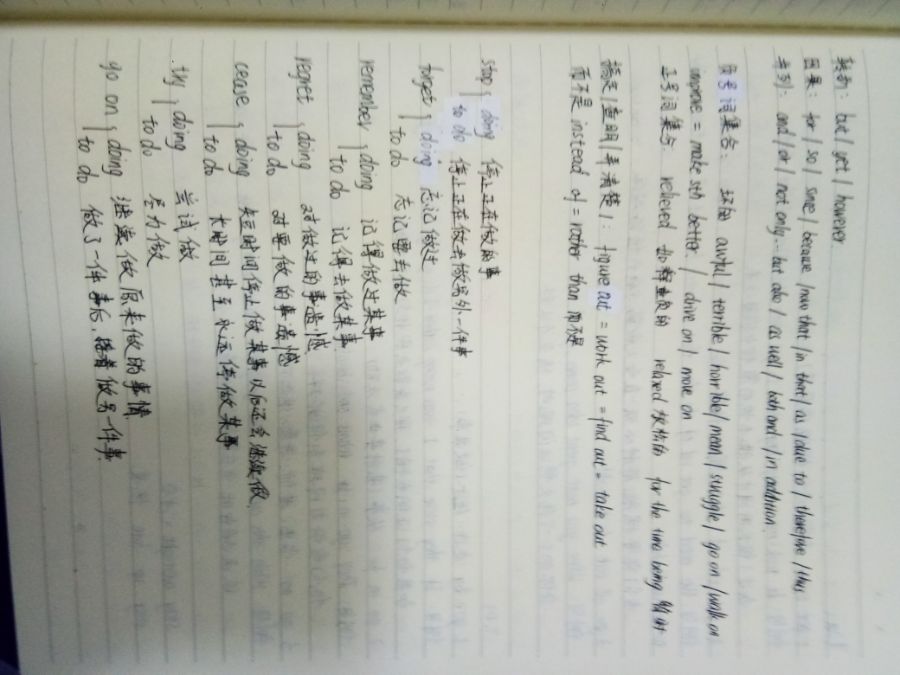 转折: but / yet / however
因果: for / so / since / because / now that / in that / as / due to / therefore / thus
并列: and / or / not only... but also / as well / both and / in addition.
负号词集合: awful / terrible / horrible / mean / struggle / go on / walk on
improve = make sth better. / drive on / move on
正号词集合 relieved 如释重负的 relaxed 放松的 for the time being 暂时
搞定 / 查明 / 弄清楚 /: figure out = work out = find out = take out
而不是 instead of = rather than 而不是
stop { doing 停止正在做的事
to do 停止正在做去做另外一件事
forget { doing 忘记做过
to do 忘记要去做
remember { doing 记得做过某事
to do 记得去做某事
regret { doing 对做过的事遗憾
to do 对要做的事遗憾
cease { doing 短时间停止做某事以后还会继续做.
to do 长时间甚至永远停做某事
try { doing 尝试做
to do 尽力做
go on { doing 继续做原来做的事情.
to do 做了一件事后, 接着做另一件事.